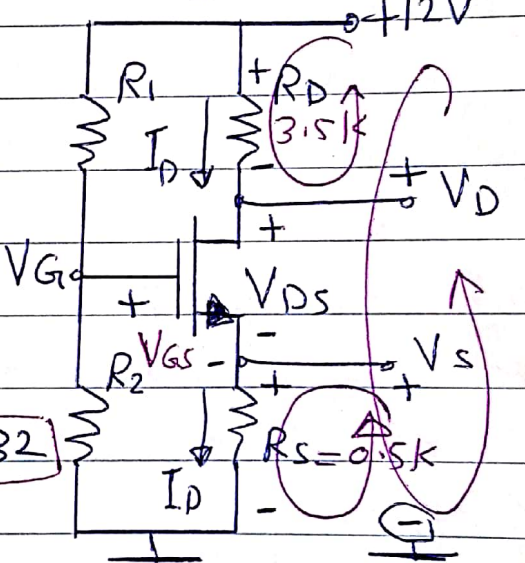 +12V
R1
+ RD
3.5K
ID
-
+ VD
+
VG
+
VDS
-
VGS -
Vs
R2
+
+
32
RS=0.5K
ID
-
-